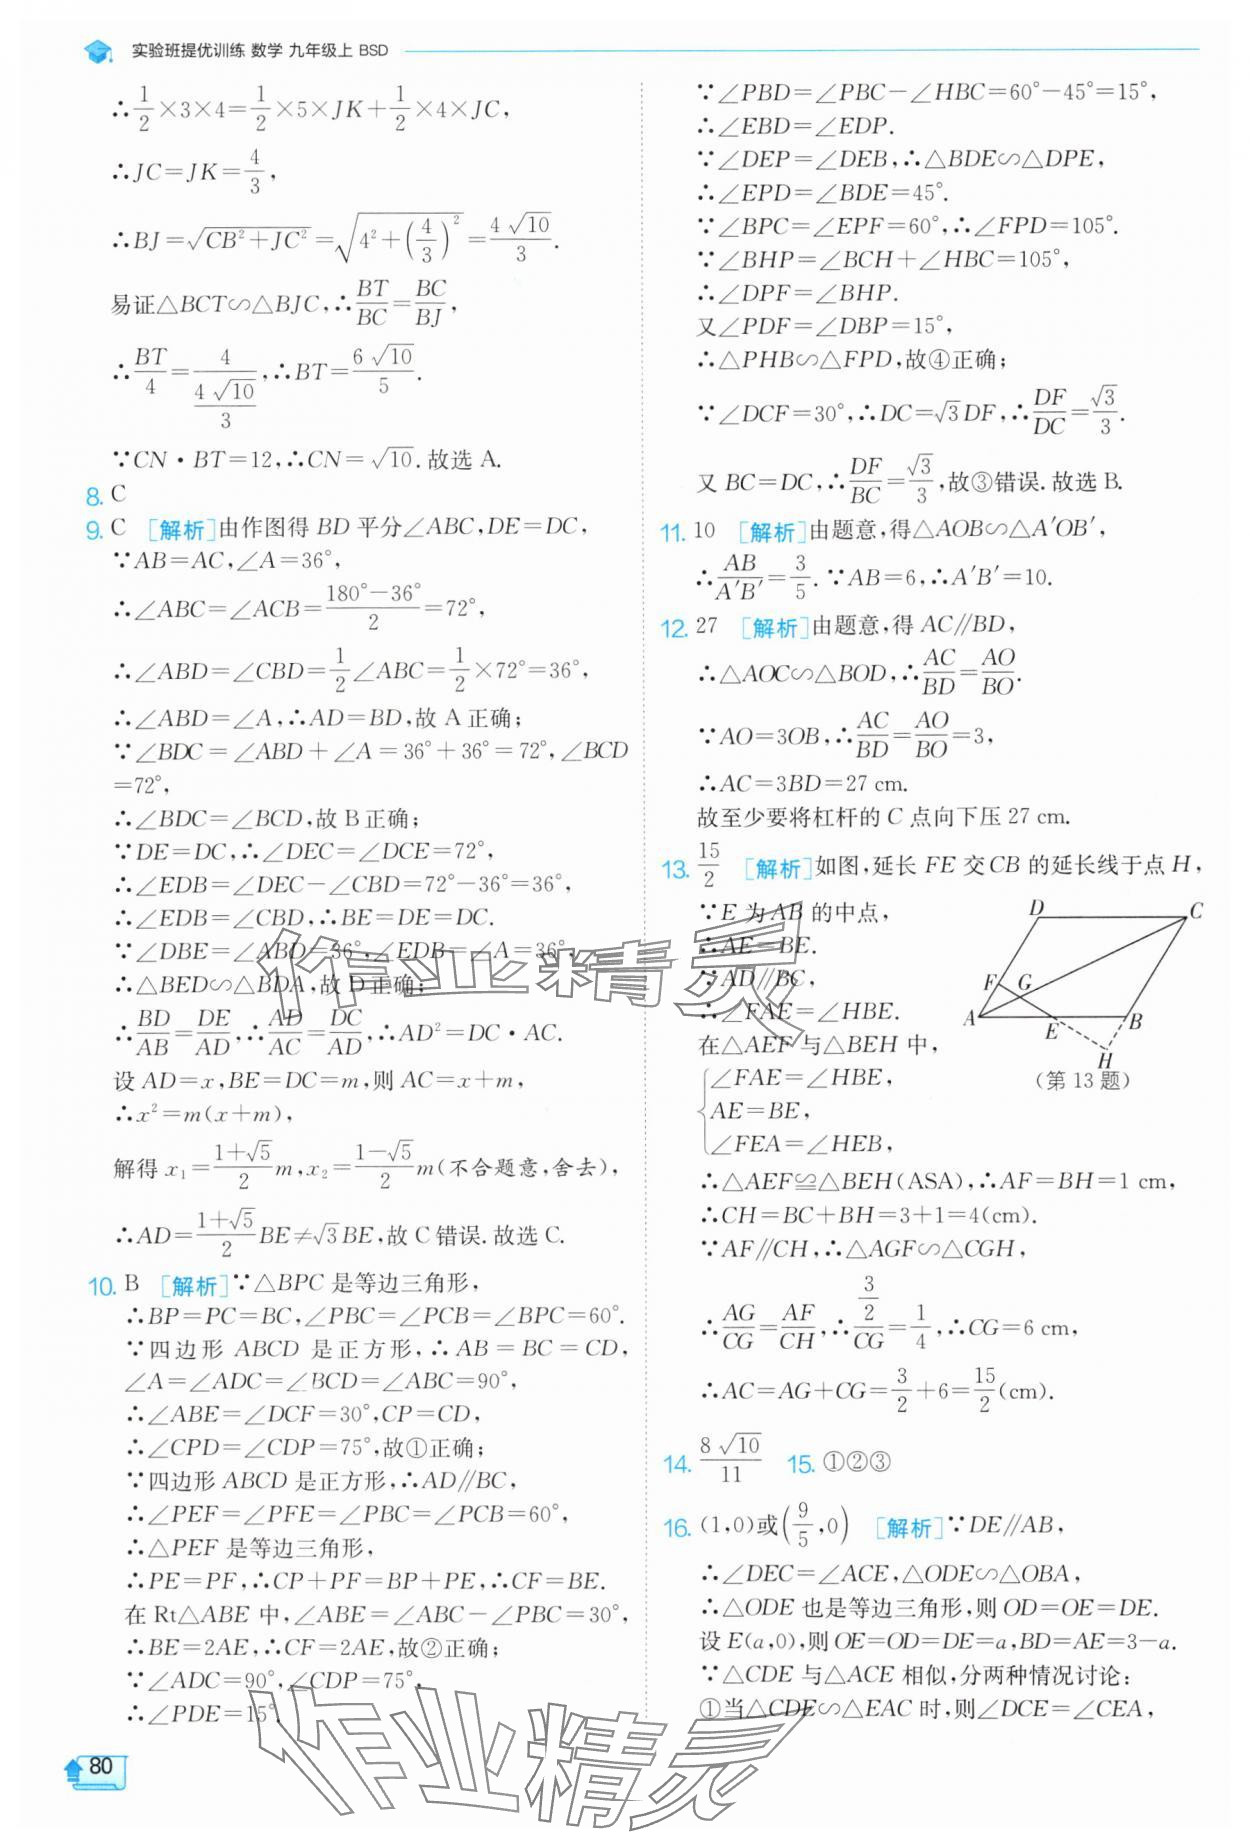 实验班提优训练 数学 九年级上 BSD
∴1/2×3×4=1/2×5×JK+1/2×4×JC,
∴JC=JK=4/3,
∴BJ=√(CB²+JC²)=√(4²+(4/3)²)=4√10/3.
易证△BCT∽△BJC,∴BT/BC=BC/BJ,
∴BT/4=4/(4√10/3),∴BT=6√10/5.
∵CN·BT=12,∴CN=√10.故选A.
8. C
9. C [解析]由作图得BD平分∠ABC,DE=DC,
∵AB=AC,∠A=36°,
∴∠ABC=∠ACB=(180°-36°)/2=72°,
∴∠ABD=∠CBD=1/2∠ABC=1/2×72°=36°,
∴∠ABD=∠A,∴AD=BD,故A正确;
∵∠BDC=∠ABD+∠A=36°+36°=72°,∠BCD
=72°,
∴∠BDC=∠BCD,故B正确;
∵DE=DC,∴∠DEC=∠DCE=72°,
∴∠EDB=∠DEC-∠CBD=72°-36°=36°,
∴∠EDB=∠CBD,∴BE=DE=DC.
∵∠DBE=∠ABD=36°,∠EDB=∠A=36°,
∴△BED∽△BDA,故D正确;
∴BD/AB=DE/AD,∴AD/AC=DC/AD,∴AD²=DC·AC.
设AD=x,BE=DC=m,则AC=x+m,
∴x²=m(x+m),
解得x₁=(1+√5)/2 m,x₂=(1-√5)/2 m(不合题意,舍去),
∴AD=(1+√5)/2 BE≠√3BE,故C错误.故选C.
10. B [解析]∵△BPC是等边三角形,
∴BP=PC=BC,∠PBC=∠PCB=∠BPC=60°.
∵四边形ABCD是正方形,∴AB=BC=CD,
∠A=∠ADC=∠BCD=∠ABC=90°,
∴∠ABE=∠DCF=30°,CP=CD,
∴∠CPD=∠CDP=75°,故①正确;
∵四边形ABCD是正方形,∴AD∥BC,
∴∠PEF=∠PFE=∠PBC=∠PCB=60°,
∴△PEF是等边三角形,
∴PE=PF,∴CP+PF=BP+PE,∴CF=BE.
在Rt△ABE中,∠ABE=∠ABC-∠PBC=30°,
∴BE=2AE,∴CF=2AE,故②正确;
∵∠ADC=90°,∠CDP=75°,
∴∠PDE=15°.
80
∵∠PBD=∠PBC-∠HBC=60°-45°=15°,
∴∠EBD=∠EDP.
∵∠DEP=∠DEB,∴△BDE∽△DPE,
∴∠EPD=∠BDE=45°.
∵∠BPC=∠EPF=60°,∴∠FPD=105°.
∵∠BHP=∠BCH+∠HBC=105°,
∴∠DPF=∠BHP.
又∠PDF=∠DBP=15°,
∴△PHB∽△FPD,故④正确;
∵∠DCF=30°,∴DC=√3DF,∴DF/DC=√3/3.
又BC=DC,∴DF/BC=√3/3,故③错误.故选B.
11. 10 [解析]由题意,得△AOB∽△A′OB′,
∴AB/A′B′=3/5.∵AB=6,∴A′B′=10.
12. 27 [解析]由题意,得AC∥BD,
∴△AOC∽△BOD,∴AC/BD=AO/BO.
∵AO=3OB,∴AC/BD=AO/BO=3,
∴AC=3BD=27 cm.
故至少要将杠杆的C点向下压27 cm.
13. 15/2 [解析]如图,延长FE交CB的延长线于点H,
∵E为AB的中点,
∴AE=BE.
∵AD∥BC,
∴∠FAE=∠HBE.
在△AEF与△BEH中,
∠FAE=∠HBE,
AE=BE,
∠FEA=∠HEB,
D
C
F
G
A
E
B
H
(第13题)
∴△AEF≌△BEH(ASA),∴AF=BH=1 cm,
∴CH=BC+BH=3+1=4(cm).
∵AF∥CH,∴△AGF∽△CGH,
∴AG/CG=AF/CH,∴(3/2)/CG=1/4,∴CG=6 cm,
∴AC=AG+CG=3/2+6=15/2(cm).
14. 8√10/11 15. ①②③
16. (1,0)或(9/5,0) [解析]∵DE∥AB,
∴∠DEC=∠ACE,△ODE∽△OBA,
∴△ODE也是等边三角形,则OD=OE=DE.
设E(a,0),则OE=OD=DE=a,BD=AE=3-a.
∵△CDE与△ACE相似,分两种情况讨论:
①当△CDE∽△EAC时,则∠DCE=∠CEA,
作业精灵
作业精灵